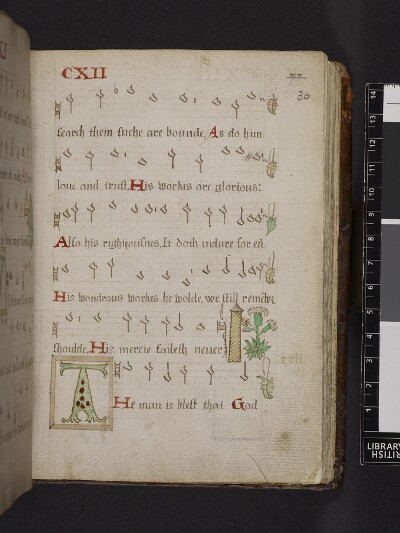 CXII
77
30
search them suche are bounde, As do him
loue and trust. His workes are glorious:
Also his righteousnes, It doth indure for eũ.
His wondrous workes he wolde, we still remẽbr
shoulde, His mercie faileth neuer
THe man is blest that God
14
13
12
11
10
9
8
7
6
5
4
3
2
1
LIBRARY
BRITISH